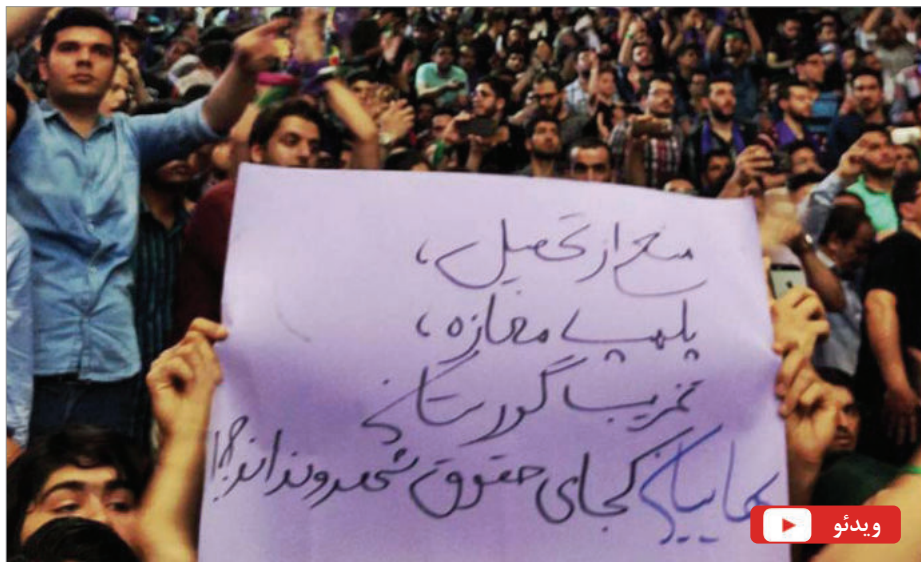 منع از تحصیل،
پلمپ مغازه،
تخریب گورستان
بهاییان کجای حقوق شهروندی‌اند؟!
ویدئو